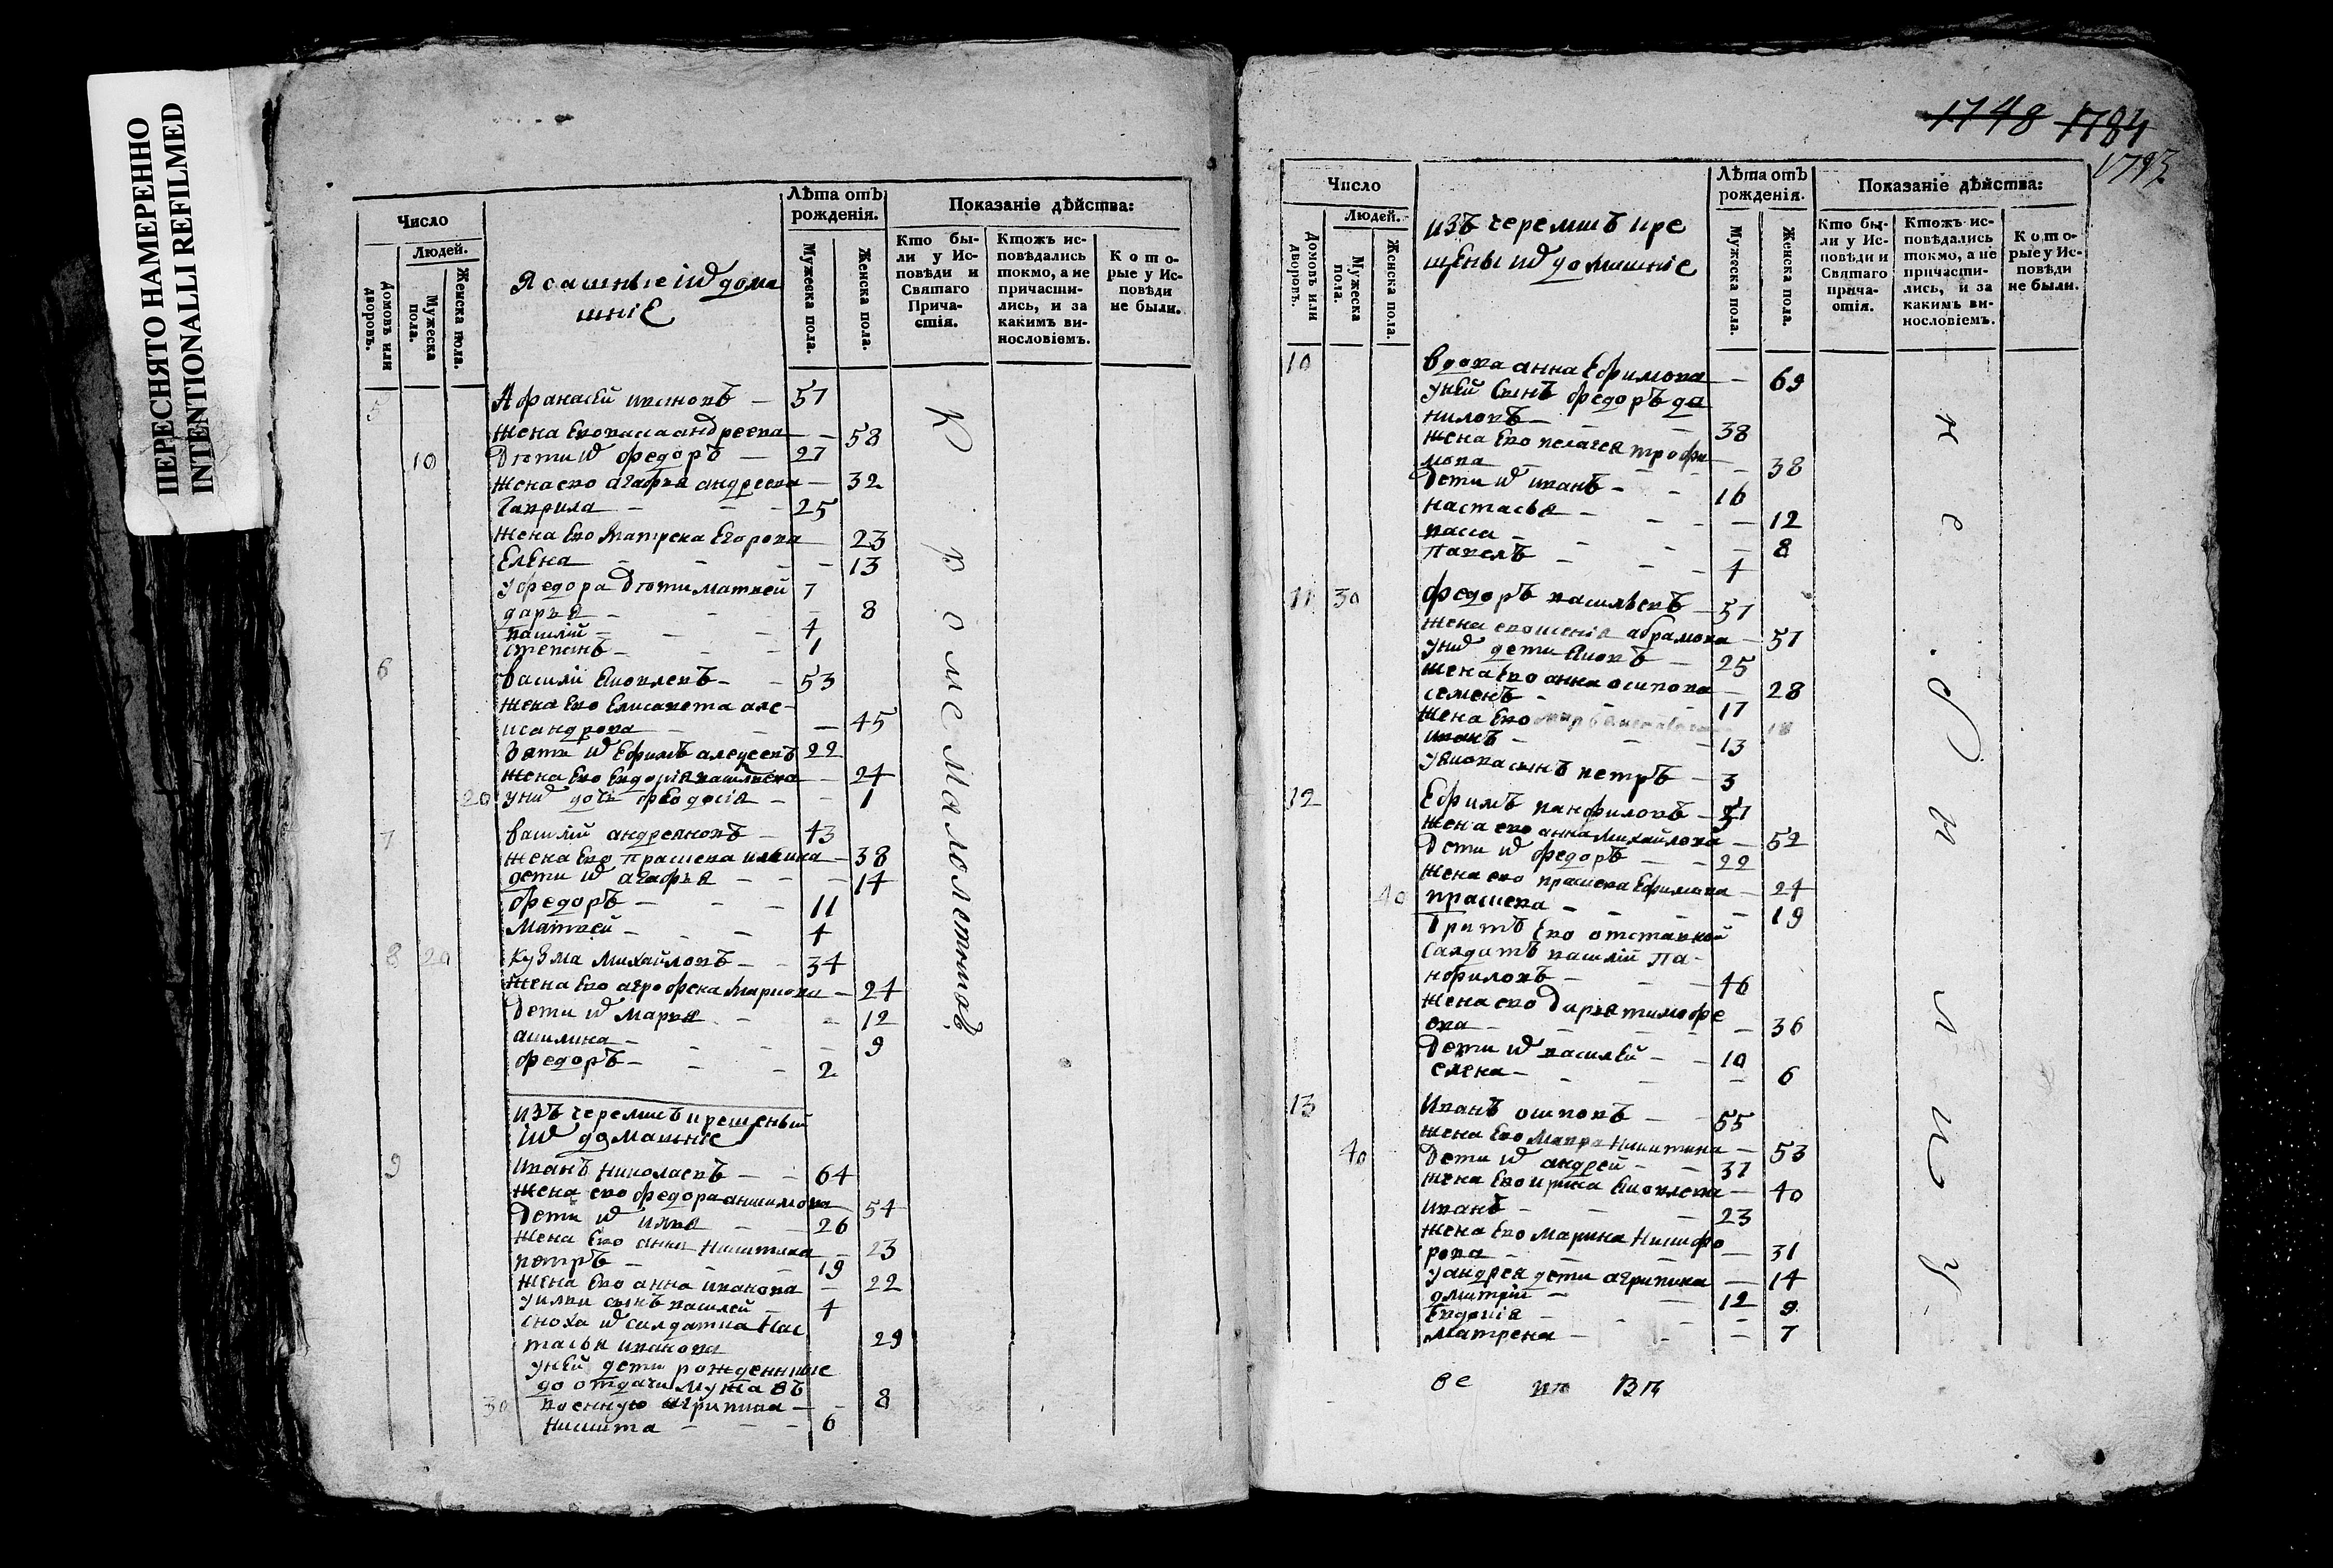 ПЕРЕСНЯТО НАМЕРЕННО
INTENTIONALLI REFILMED
Число
Людей.
Домовъ или дворовъ.
Мужеска пола.
Женска пола.
Ясашные и ихъ дома
шніе
Лѣта отъ рожденія.
Мужеска пола.
Женска пола.
Показаніе дѣйства:
Кто бы-
ли у Ис-
повѣди и
Святаго
Прича-
стія.
Ктожъ ис-
повѣдались
токмо, а не
причасти-
лись, и за
какимъ ви-
нословіемъ.
Кото-
рые у Ис-
повѣди
не были.
5 Афанасей ивановъ — 57
жена Ево васса андреева — 58
10 Дѣти ихъ федоръ — 27
жена ево агафья андреева — 32
гаврила — 25
жена Ево матрена Егорова 23
Елена — 13
у федора дѣти матвей 7
дарья — 8
василій — 4
степанъ — 1
6 василій яковлевъ — 53
жена Ево Елисавета але-
ксандрова — 45
зять ихъ Ефимъ алексеевъ 22
жена Ево Евдокія васильева — 24
20 у них дочь феодосія — 1
7 василій андреяновъ — 43
жена Ево прасковья ильина — 38
дети ихъ агафья — 14
федоръ — 11
Матвей — 4
8 20 кузма михайловъ — 34
жена Ево агрофена Маркова — 24
дети ихъ марья — 12
акилина — 9
федоръ — 2
изъ черемисъ крещеныи
и ихъ домашніе
9 иванъ николаевъ — 64
жена ево федора анисимова 54
дети ихъ илья — 26
жена Ево анна никитина — 23
петръ — 19
жена Ево анна иванова — 22
у ильи сынъ василей — 4
сноха ихъ салдатка нас
тасья иванова 29
у ней дети рожденные
до отдачи мужа въ
30 военную агрипина — 8
никита — 6
Кроме малолетныхъ
1748 1784
1793
Число
Людей.
Домовъ или дворовъ.
Мужеска пола.
Женска пола.
изъ черемисъ кре
щены ихъ домашніе
Лѣта отъ рожденія.
Мужеска пола.
Женска пола.
Показаніе дѣйства:
Кто бы-
ли у Ис-
повѣди и
Святаго
прича-
стія.
Ктожъ ис-
повѣдались
токмо, а не
причасти-
лись, и за
какимъ ви-
нословіемъ.
Кото-
рые у Ис-
повѣди
не были.
10 вдова анна Ефимова — 69
у ней сынъ федоръ да
ниловъ — 38
жена Ево пелагея трофи
мова — 38
дети ихъ иванъ — 16
настасья — 12
васса — 8
павелъ — 4
11 30 федоръ васильевъ — 57
жена ево ксенія абрамова — 57
у них дети яковъ — 25
жена Ево анна осипова — 28
семенъ — 17
жена Ево 18
иванъ — 13
у якова сынъ петръ — 3
12 Ефимъ панфиловъ — 51
жена ево анна михайлова — 52
дети ихъ федоръ — 22
жена ево прасковья Ефимова — 24
40 прасковья — 19
братъ Ево отставной
салдатъ василій па-
нфиловъ — 46
жена ево дарья тимофе
ева — 36
дети ихъ василей — 10
елена — 6
13 иванъ осиповъ — 55
жена Ево мавра никитина — 53
40 дети ихъ андрей — 37
жена Ево ирина яковлева — 40
иванъ — 23
жена Ево марина никифо
рова — 31
у андрея дети агрипина — 14
дмитрій — 12
Евдокія — 9
матрена — 7